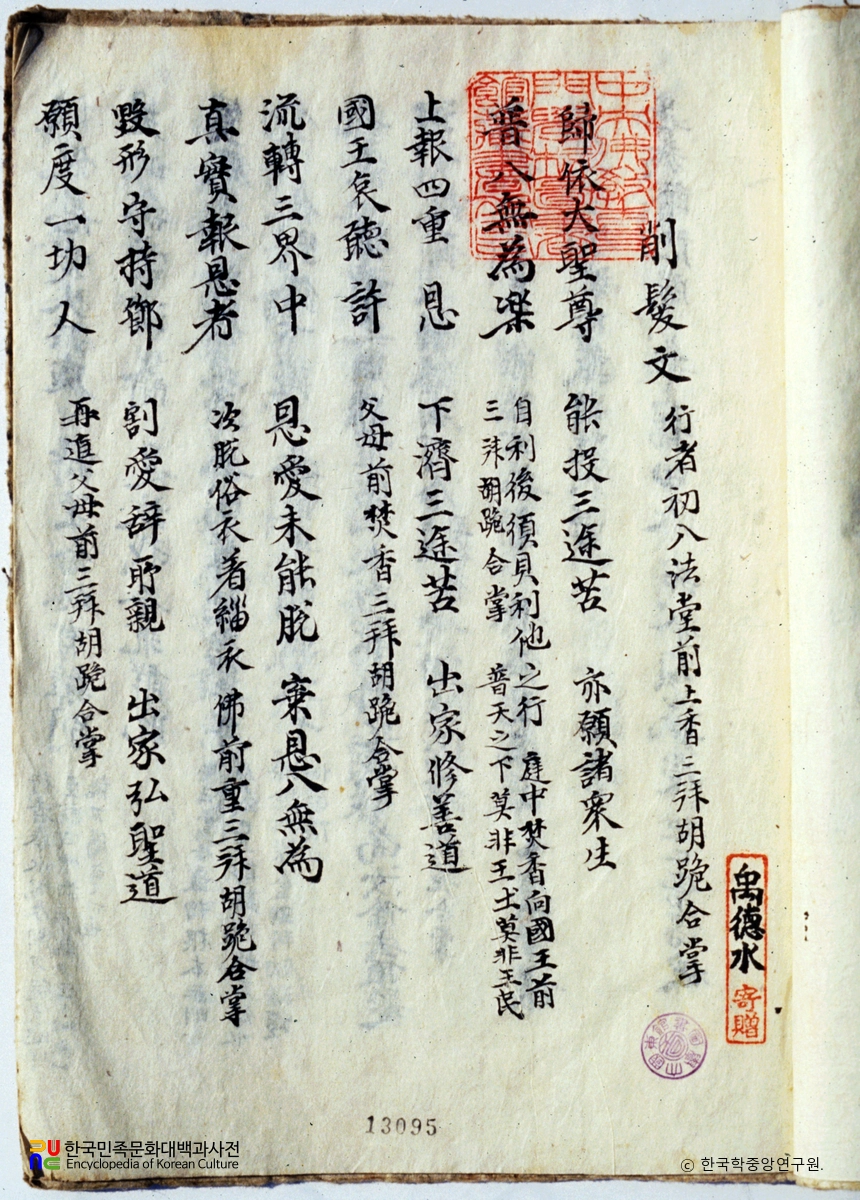 削髮文 行者初入法堂前上香三拜胡跪合掌
歸依大聖尊 能投三途苦 亦願諸衆生
普入無為樂 自利後須具利他之行 庭中焚香向國王前
三拜胡跪合掌 普天之下莫非王土莫非王民
上報四重恩 下濟三途苦 出家修善道
國王哀聽許 父母前焚香三拜胡跪合掌
流轉三界中 恩愛未能脫 棄恩入無為
真實報恩者 次脫俗衣着緇衣 佛前重三拜胡跪合掌
毀形守持節 割愛辞所親 出家弘聖道
願度一切人 再進父母前三拜胡跪合掌
禹德水
寄贈
13095
한국민족문화대백과사전
Encyclopedia of Korean Culture
ⓒ 한국학중앙연구원.